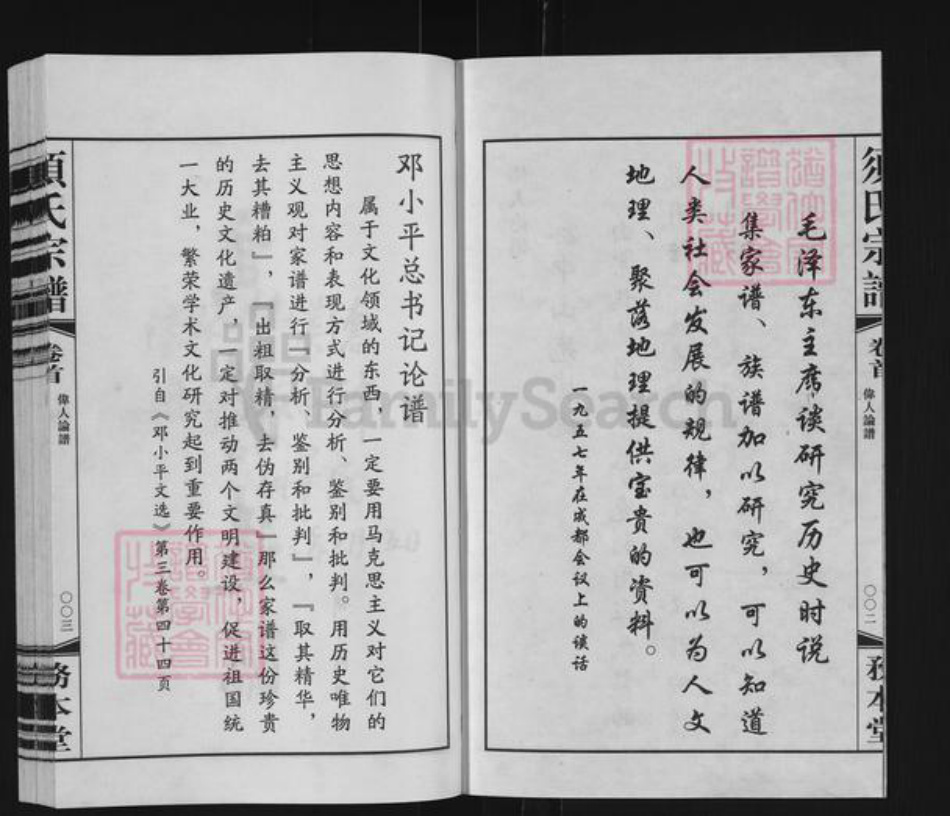 须氏宗谱
卷首
偉人論譜
〇〇二
務本堂
毛泽东主席谈研究历史时说
集家谱、族谱加以研究，可以知道
人类社会发展的规律，也可以为人文
地理、聚落地理提供宝贵的资料。
一九五七年在成都会议上的谈话
邓小平总书记论谱
属于文化领域的东西，一定要用马克思主义对它们的
思想内容和表现方式进行分析、鉴别和批判。用历史唯物
主义观对家谱进行『分析、鉴别和批判』，『取其精华，
去其糟粕』，『出粗取精，去伪存真』那么家谱这份珍贵
的历史文化遗产，一定对推动两个文明建设，促进祖国统
一大业，繁荣学术文化研究起到重要作用。
引自《邓小平文选》第三卷第四十四页
須氏宗譜
卷首
偉人論譜
〇〇三
務本堂
FamilySearch